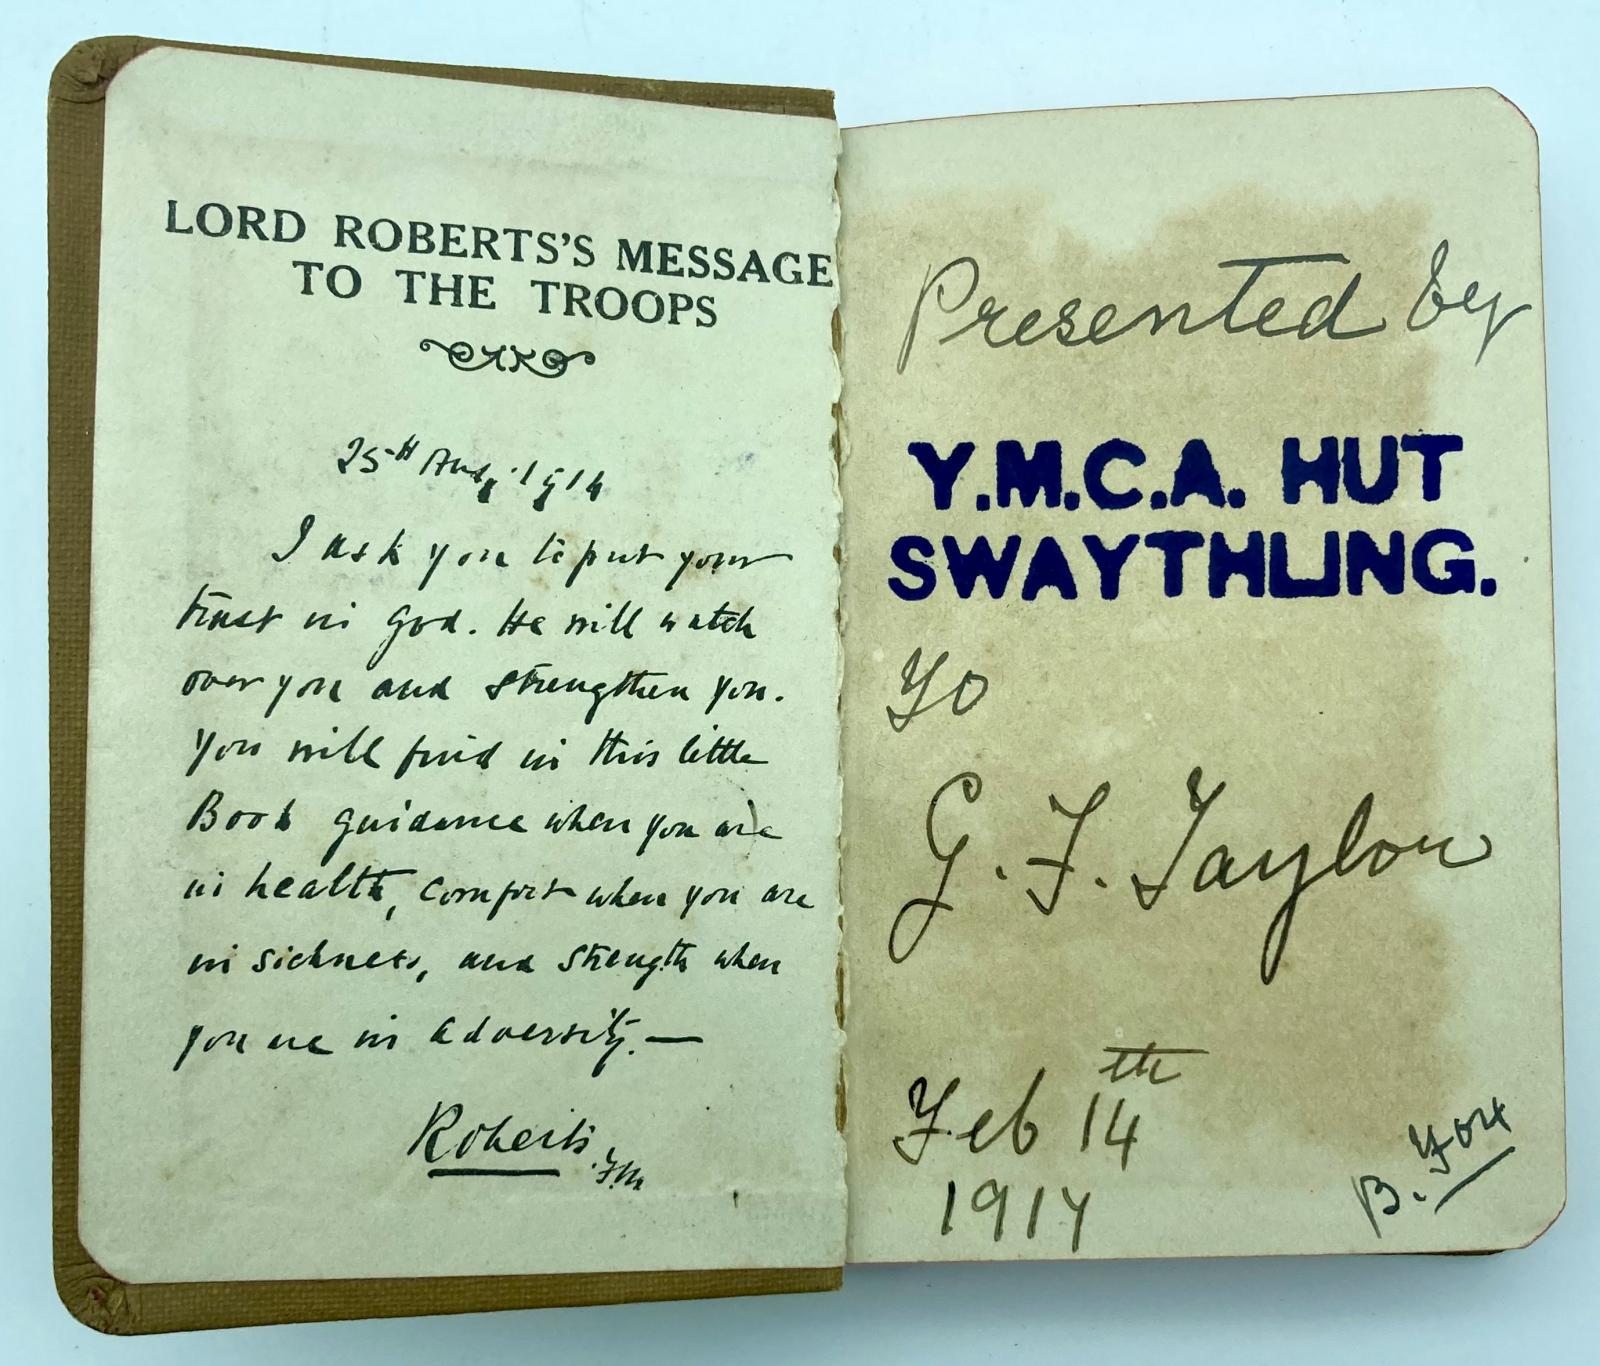 LORD ROBERTS'S MESSAGE
TO THE TROOPS
25th Aug. 1914
I ask you to put your
trust in God. He will watch
over you and strengthen you.
You will find in this little
Book guidance when you are
in health, comfort when you are
in sickness, and strength when
you are in adversity. —
Roberts. F.M.
Presented by
Y.M.C.A. HUT
SWAYTHLING.
To
G. F. Taylor
Feb 14th
1917
B. Fox